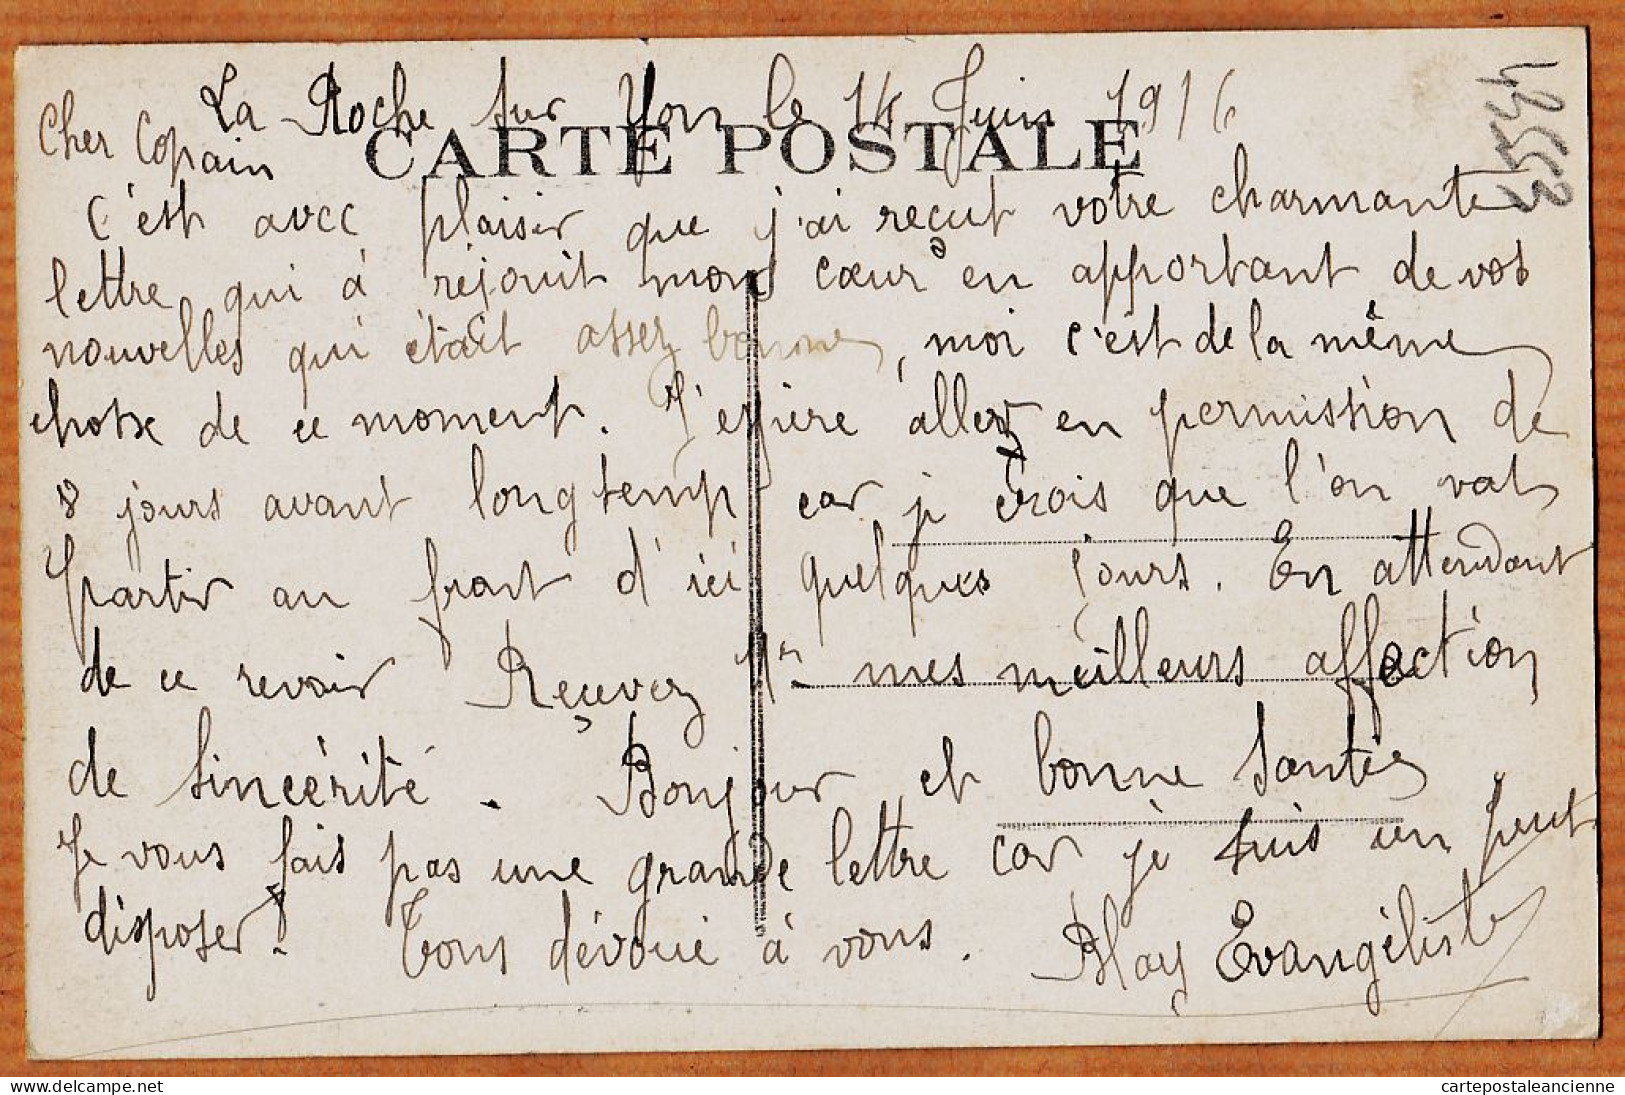 La Roche sur Yon le 14 Juin 1916
Cher Copain
CARTE POSTALE
C'est avec plaisir que j'ai reçut votre charmante
lettre qui à réjouit mon cœur en apportant de vos
nouvelles qui était assez bonne, moi c'est de la même
chose de ce moment. J'espère aller en permission de
8 jours avant longtemp car je crois que l'on vat
partir au front d'ici quelques jours. En attendant
de ce revoir Reçuvez mes meilleurs affection
de sincérité. Bonjour et bonne santée
Je vous fais pas une grande lettre car je suis un peut
disposer. Tous dévoué à vous. Blay Evangéliste
cartepostaleancienne